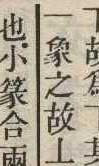 下故爲丁其
一象之故上
也小篆合兩